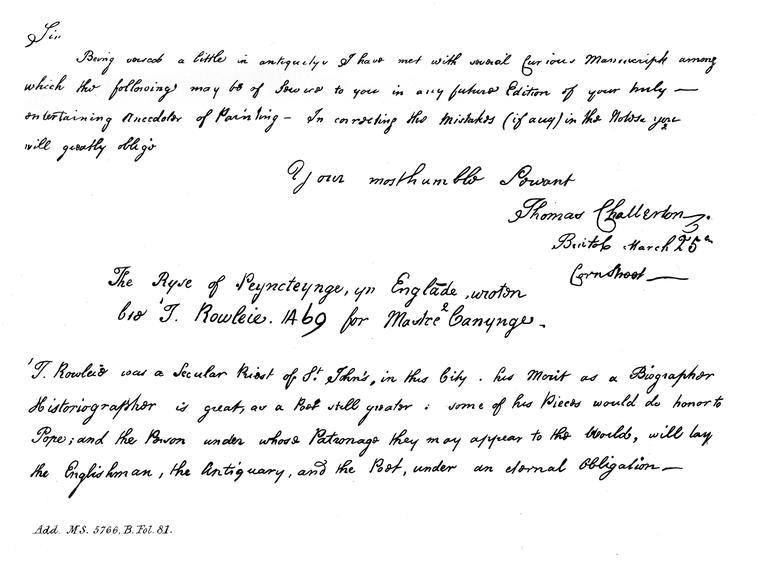 Sir
Being versed a little in antiquitys I have met with several Curious Manuscripts among
which the following may be of Service to you in any future Edition of your truly —
entertaining Anecdotes of Painting — In correcting the Mistakes (if any) in the Notes you
will greatly oblige
Your most humble Servant
Thomas Chatterton
Bristol March 25th
Corn Street —
The Ryse of Peyncteynge, yn Englāde, wroten
bie 1T. Rowleie. 1469 for Mastre 2Canynge.
1T. Rowleie was a Secular Priest of St John's, in this City. his Merit as a Biographer
Historiographer is great, as a Poet still greater: some of his Pieces would do honor to
Pope; and the Person under whose Patronage they may appear to the World, will lay
the Englishman, the Antiquary, and the Poet, under an eternal Obligation —
Add. MS. 5766, B. Fol. 81.